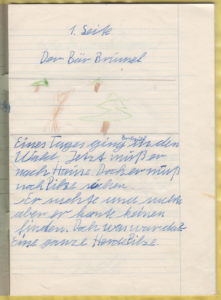 1. Seite
Der Bär Brumel
Eines Tages ging in den
Wald. Jetzt muß er
nach Hause. Doch er muß
noch Pilze
er suchte und suchte
aber er konte keinen
finden. Doch was war das
Eine ganze Herde Pilze.